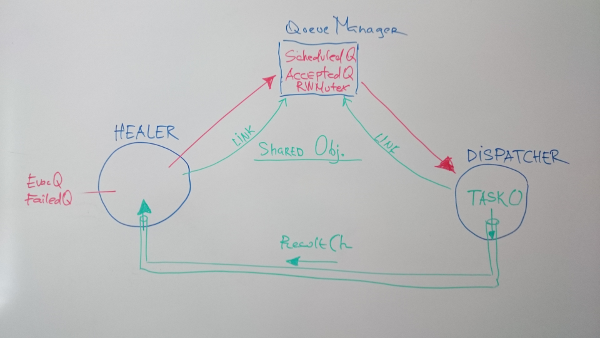 Queue Manager
ScheduledQ
AcceptedQ
RWMutex
HEALER
LINK
LINK
SHARED Obj.
DISPATCHER
FailedQ
TASK()
Result Ch